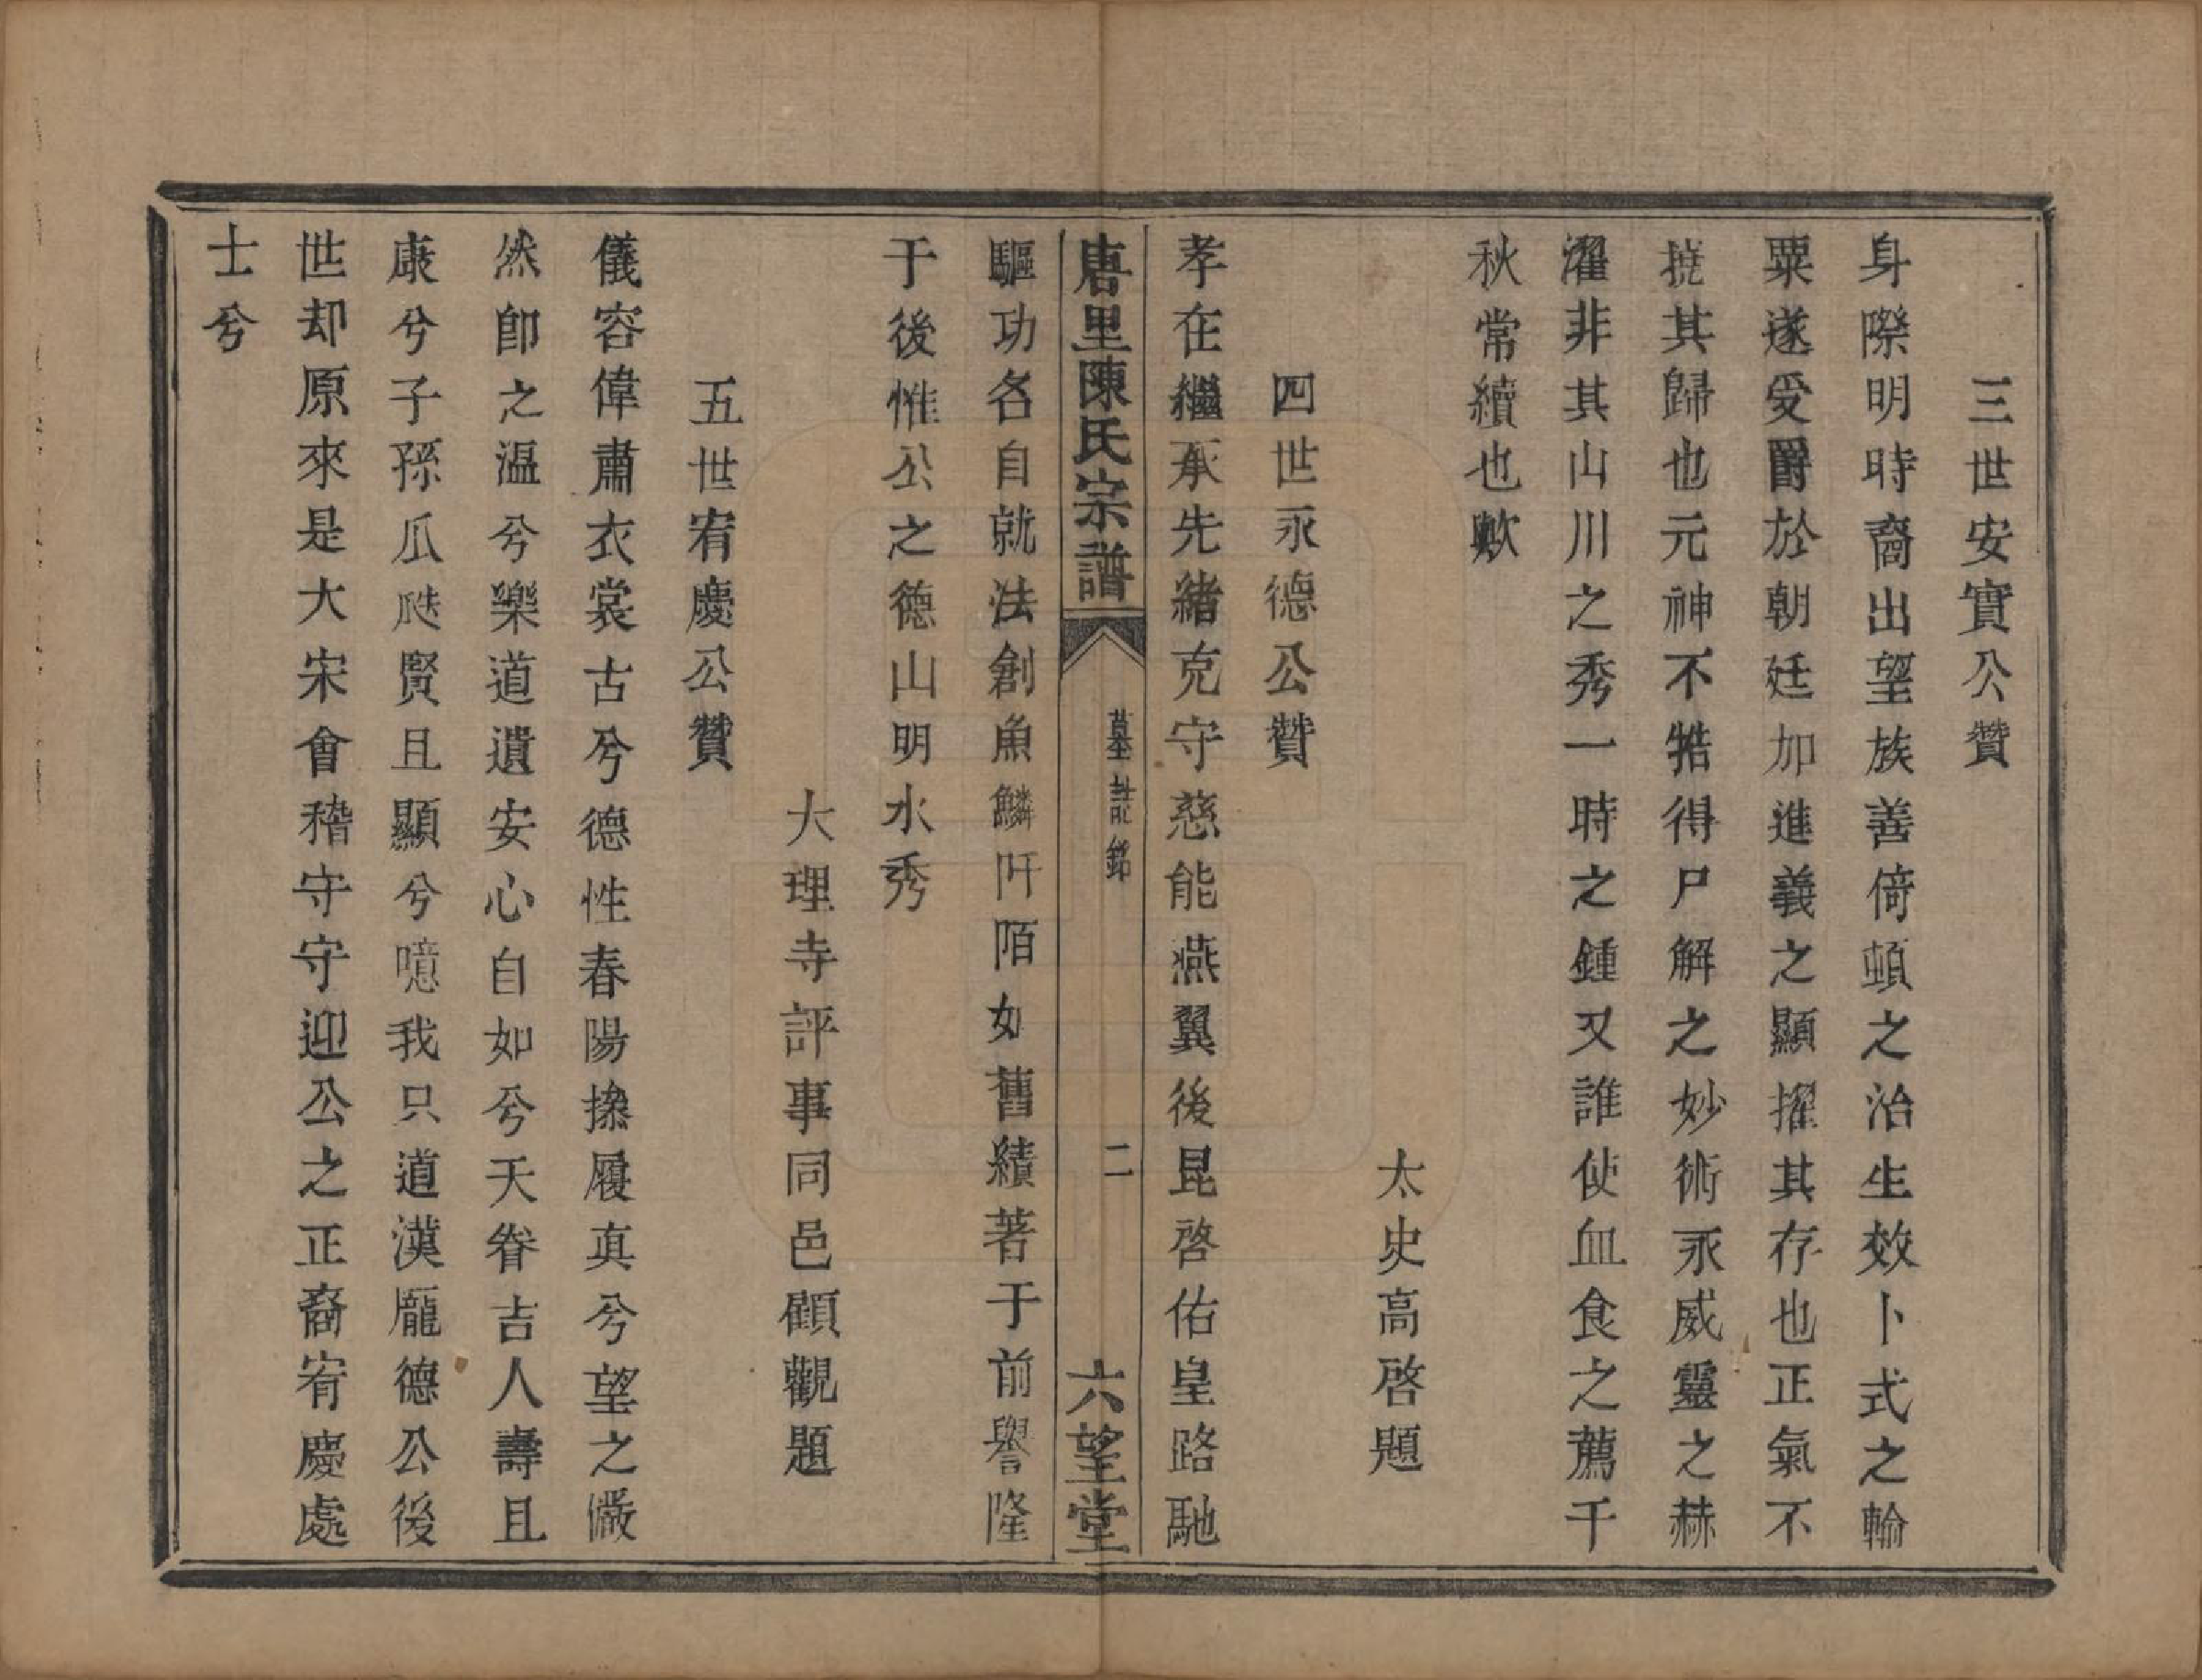 三世安實公贊
身際明時裔出望族善倚頓之治生效卜式之輸
粟遂受爵於朝廷加進義之顯擢其存也正氣不
撓其歸也元神不牿得尸解之妙術永威靈之赫
濯非其山川之秀一時之鍾又誰使血食之薦千
秋常續也歟
太史高啓題
四世永德公贊
孝在繼承先緒克守慈能燕翼後昆啓佑皇路馳
唐里陳氏宗譜
墓誌銘
二
六望堂
驅功名自就法創魚鱗阡陌如舊績著于前譽隆
于後惟公之德山明水秀
大理寺評事同邑顧觀題
五世宥慶公贊
儀容偉肅衣裳古兮德性春陽操履真兮望之儼
然卽之溫兮樂道遺安心自如兮天眷吉人壽且
康兮子孫瓜瓞賢且顯兮噫我只道漢龐德公後
世却原來是大宋會稽守守迎公之正裔宥慶處
士兮